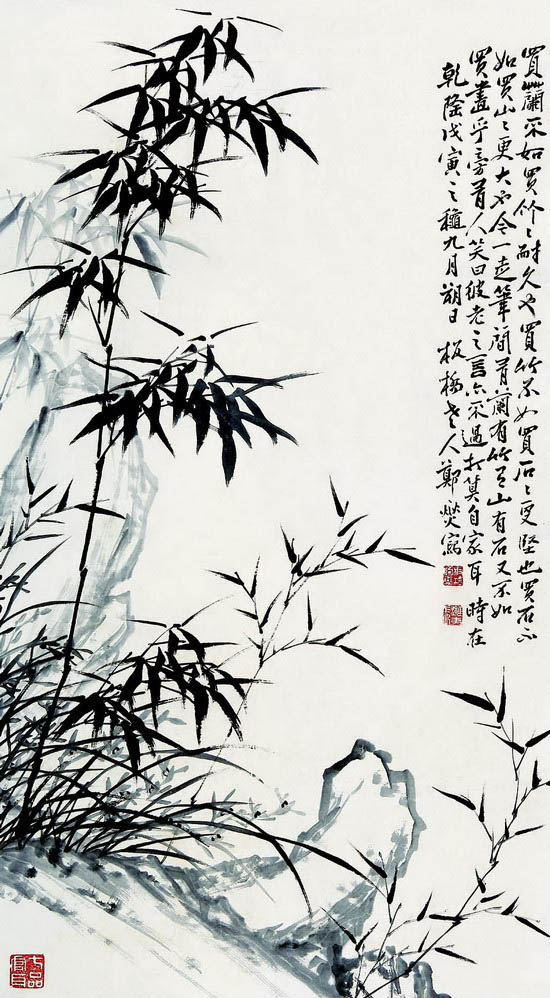 買蘭不如買竹、耐久也買竹不如買石、更堅也買石不
如買山、更大而今一走筆間有蘭有竹有山有石又不如
買畫乎旁有人笑曰彼老之言亦不過打算自家耳 時在
乾隆戊寅之穐九月朔日 板橋老人鄭燮寫
七品官耳